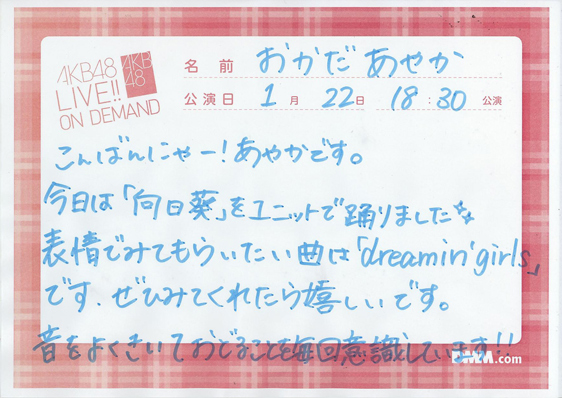 AKB48
LIVE!!
ON DEMAND
AKB
48
名前 おかだ あやか
公演日 1月 22日 18:30 公演
こんばんにゃー!あやかです。
今日は「向日葵」をユニットで踊りました
表情でみてもらいたい曲は「dreamin'girls」
です. ぜひみてくれたら嬉しいです。
音をよくきいておどることを毎回意識しています!!
DMM.com